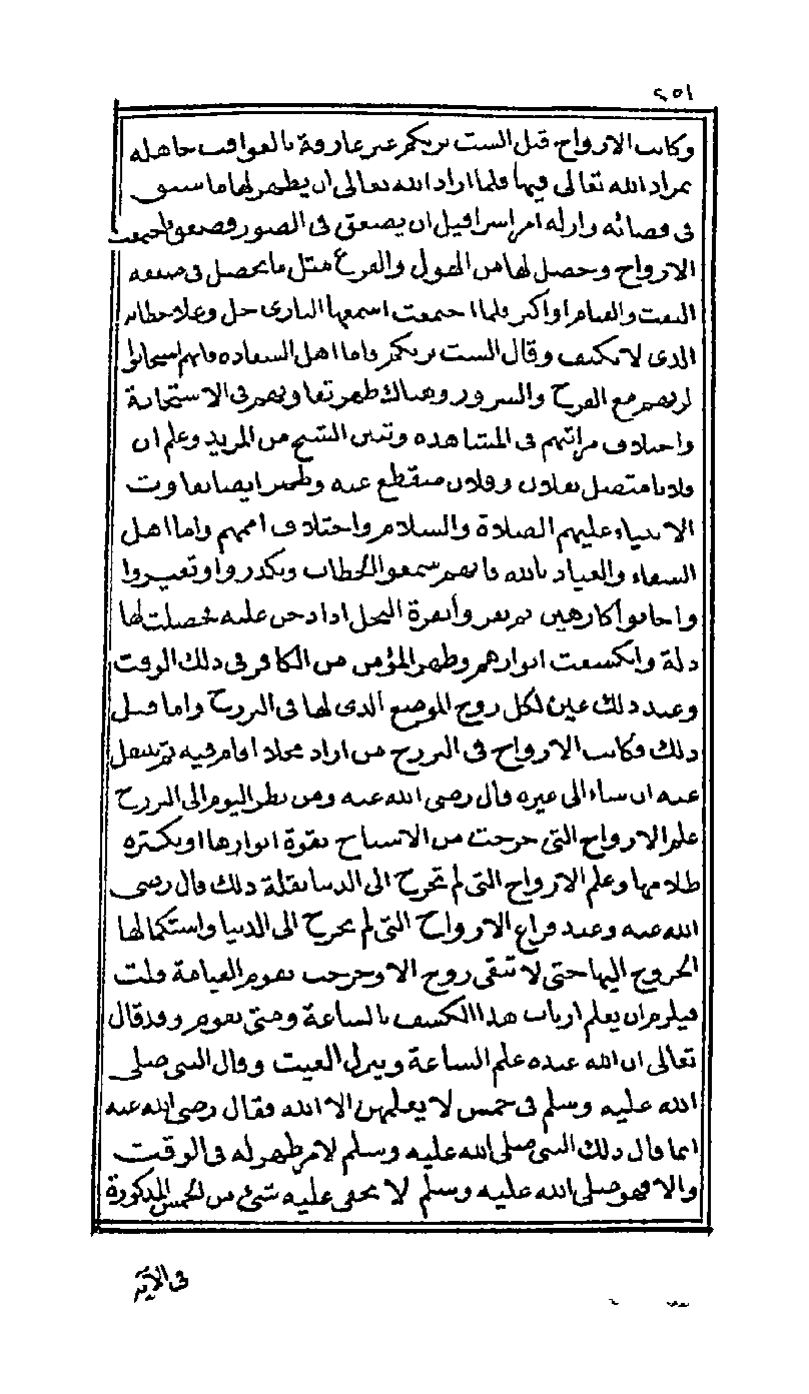 ٢٥١
وكانت الارواح قبل الست بربكم غير عارفة بالعواقب جاهله
بمراد الله تعالى فيها فلما اراد الله تعالى ان يظهر لها ما سبق
فى قضائه وازله امر اسرافيل ان يصعق فى الصور فصعق فاجتمعت
الارواح وحصل لها من الهول والفزع مثل ما يحصل فى صعقة
البعث والقيام او اكثر فلما اجتمعت اسمعها البارى جل وعلا خطابه
الذى لا يكيف وقال الست بربكم فاما اهل السعاده فانهم استجابوا
لربهم مع الفرح والسرور وهناك ظهر تفاوتهم فى الاستجابة
واختلاف مراتبهم فى المشاهده وتبين الشيخ من المريد وعلم ان
فلانا متصل بفلان وفلان منقطع عنه وظهر ايضا تفاوت
الانبياء عليهم الصلاة والسلام واختلاف اممهم واما اهل
الشقاء والعياذ بالله فانهم سمعوا الخطاب وتكدروا وتغيروا
واجابوا كارهين ثم نفروا نفرة النحل اذا دخن عليه فحصلت لها
ذلة وانكسفت انوارهم وظهر المؤمن من الكافر فى ذلك الوقت
وعند ذلك عين لكل روح الموضع الذى لها فى البرزخ واما قبل
ذلك فكانت الارواح فى البرزخ من اراد محلا اقام فيه ثم ينتقل
عنه ان شاء الى غيره قال رضى الله عنه ومن نظر اليوم الى البرزخ
علم الارواح التى خرجت من الاشباح بقوة انوارها او بكثرة
ظلامها وعلم الارواح التى لم تخرج الى الدنيا بقلة ذلك قال رضى
الله عنه وعند فراغ الارواح التى لم تخرج الى الدنيا واستكمالها
الخروج اليها حتى لا تبقى روح الا وخرجت تقوم القيامة قلت
فيلزم ان يعلم ارباب هذا الكشف بالساعة ومتى تقوم وقد قال
تعالى ان الله عنده علم الساعة وينزل الغيث وقال النبى صلى
الله عليه وسلم فى خمس لا يعلمهن الا الله فقال رضى الله عنه
انما قال ذلك النبى صلى الله عليه وسلم لامر ظهر له فى الوقت
والا فهو صلى الله عليه وسلم لا يخفى عليه شئ من الخمس المذكورة
فى الآية